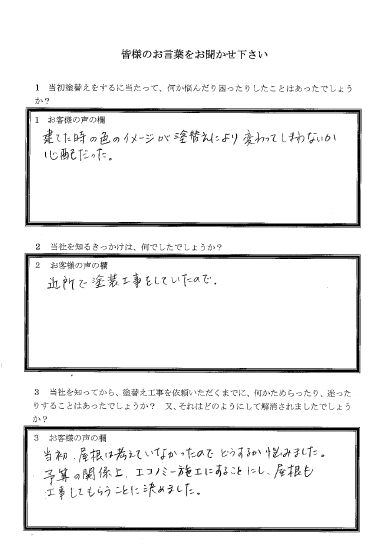 皆様のお言葉をお聞かせ下さい
1 当初塗替えをするに当たって、何か悩んだり困ったりしたことはあったでしょう
か?
1 お客様の声の欄
建てた時の色のイメージが塗替えにより変わってしまわないか
心配だった。
2 当社を知るきっかけは、何でしたでしょうか?
2 お客様の声の欄
近所で塗装工事をしていたので。
3 当社を知ってから、塗替え工事を依頼いただくまでに、何かためらったり、迷った
りすることはあったでしょうか? 又、それはどのようにして解消されましたでしょう
か?
3 お客様の声の欄
当初、屋根は考えていなかったのでどうするか悩みました。
予算の関係上、エコノミー施工にすることにし、屋根も
工事してもらうことに決めました。